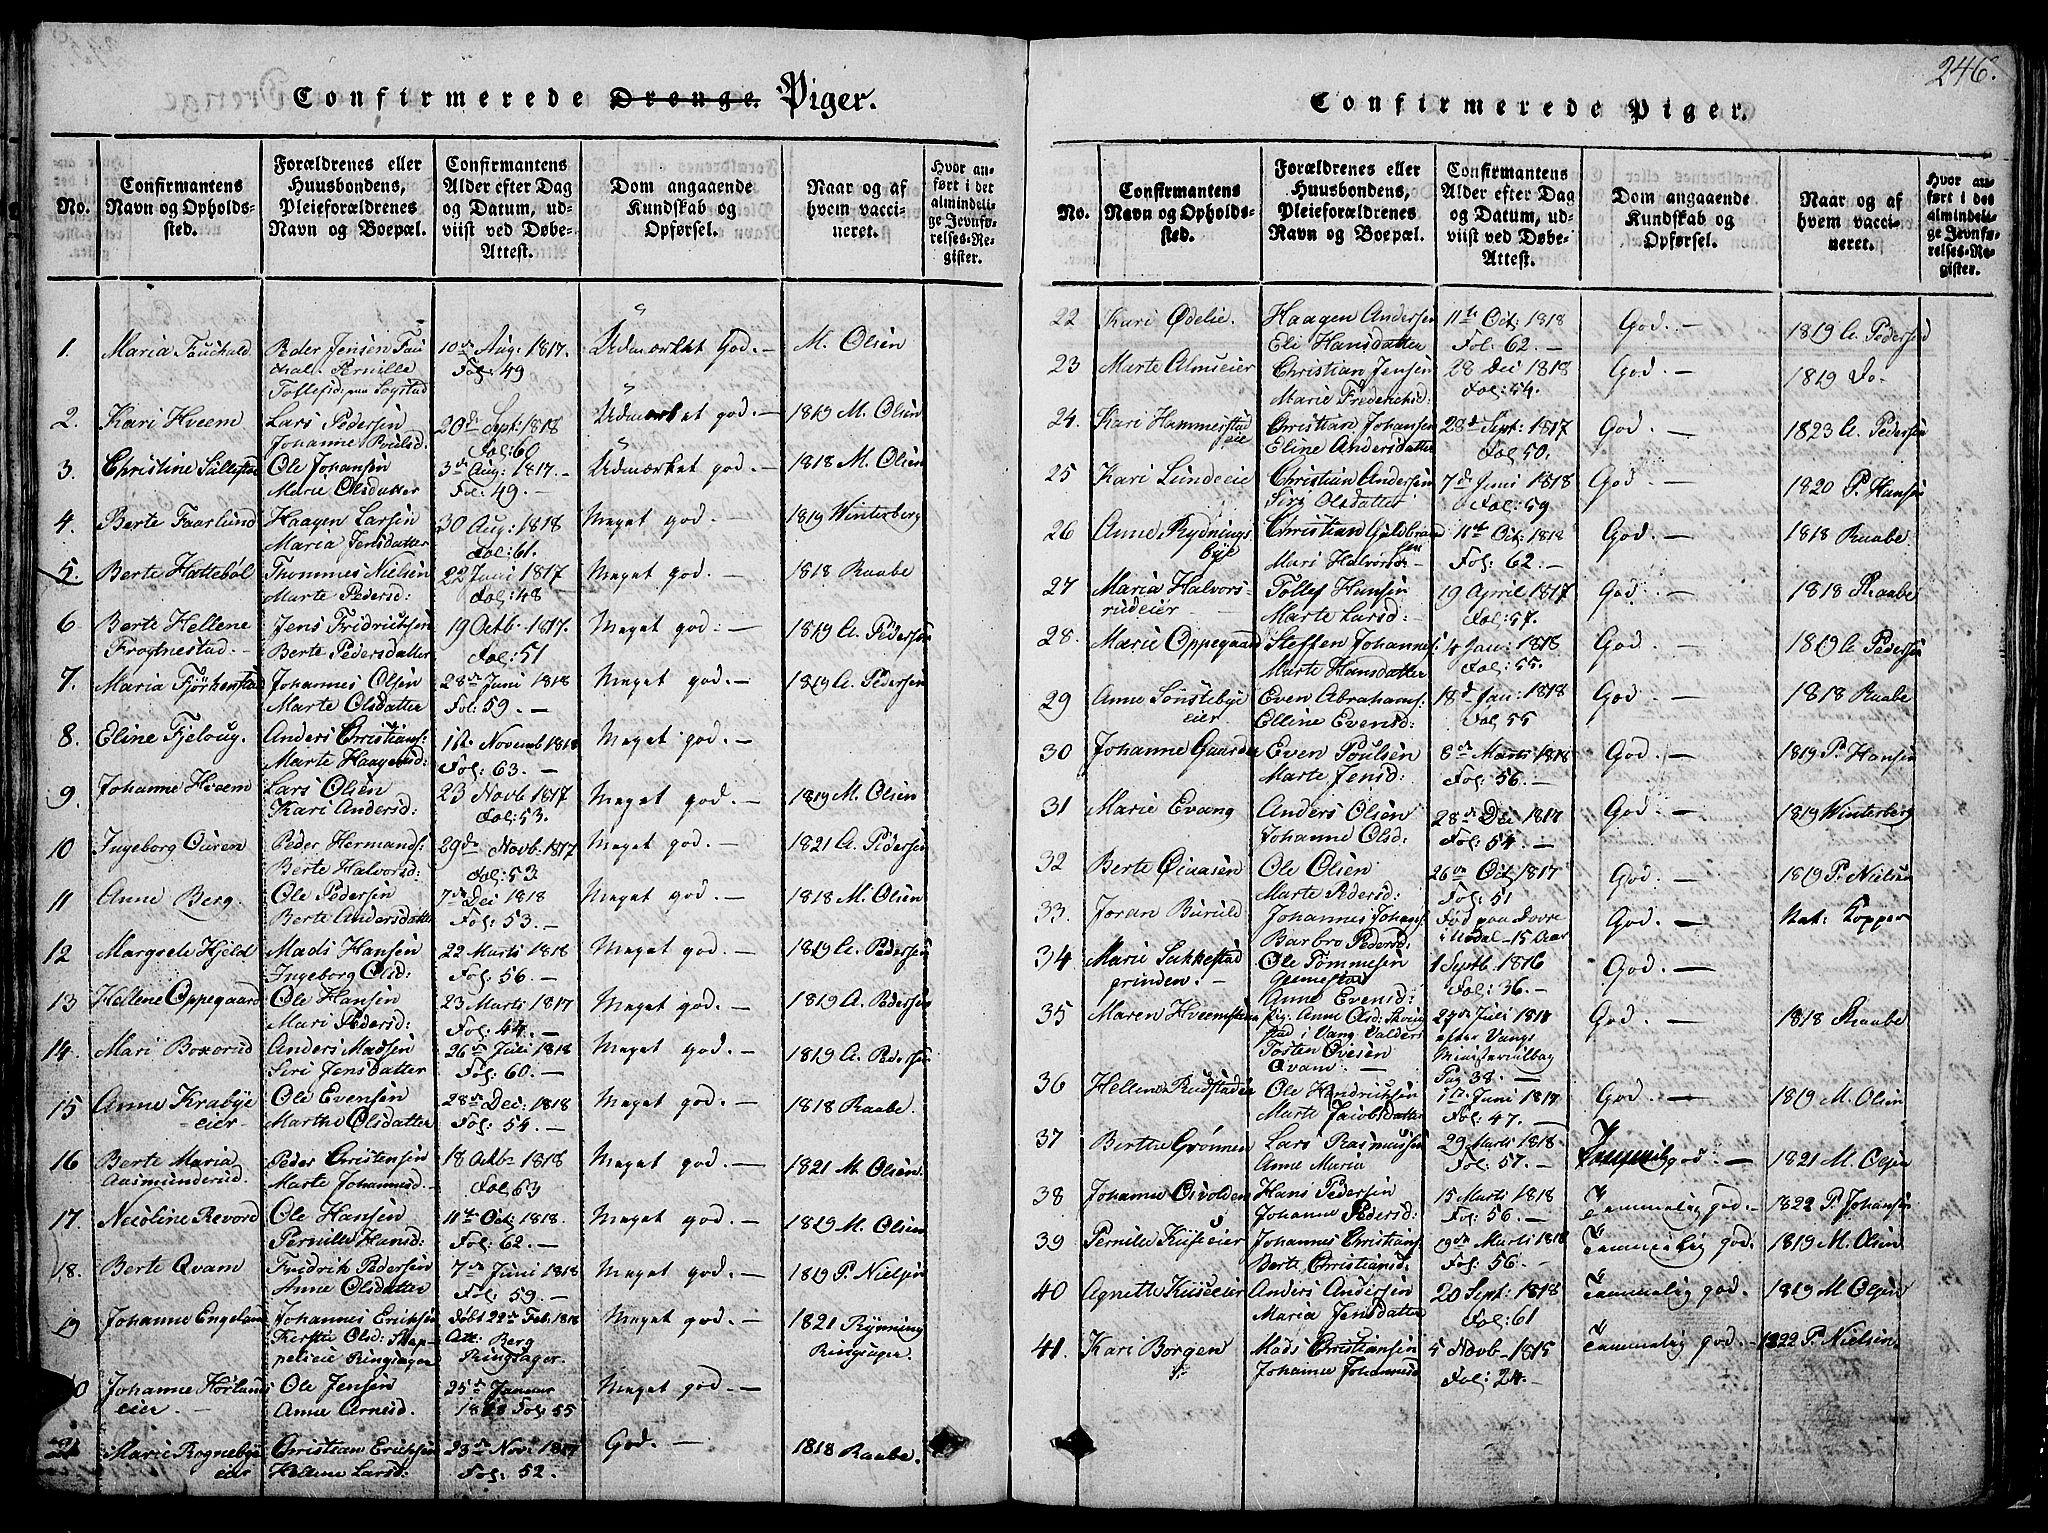 Confirmerede Drenge. Piger.
No.
Confirmantens
Navn og Opholds-
sted.
Forældrenes eller
Huusbondens,
Pleieforældrenes
Navn og Boepæl.
Confirmantens
Alder efter Dag
og Datum, ud-
viist ved Døbe-
Attest.
Dom angaaende
Kundskab og
Opførsel.
Naar og af
hvem vacci-
neret.
Hvor an-
ført i det
almindeli-
ge Jevnfø-
relses-Re-
gister.
1. Maria Peder Jensen 10de Aug: 1817. Udmærket God. — M. Olsen
Pernille Fol: 49
Tollefsd:
2. Kari Hveem Lars Pedersen 20de Sept: 1818 Udmærket god. — 1819 M. Olsen
Johanne Poulsd: Fol: 60
3. Christine Ole Johansen 3de Aug: 1817. — Udmærket god — 1818 M. Olsen
Marie Olsdatter Fol: 49. —
4. Berte Faarlund Haagen Larsen 30 Aug: 1818 Meget god. — 1819 Winterberg
Maria Jensdatter Fol: 61.
5. Berte Hattebøl Thommes Nielsen 22 Juni 1817 Meget god. — 1818 Raabe
Marte Pedersd: Fol: 48 —
6 Berte Hellene Jens Fridrichsen 19 Octb. 1817. Meget god: — 1819 A. Pedersen
Frognestad. — Berte Pedersdatter Fol: 51
7. Maria Johannes Olsen 28de Juni 1818 Meget god. — 1819 A. Pedersen
Marte Olsdatter Fol: 59. —
8. Eline Fjeloug. Anders Christians: 1ste Novemb 1818 Meget god. —
Marte Haagensd: Fol: 63. —
9. Johanne Hveem Lars Olsen 23 Novb 1817 Meget god. — 1819 M. Olsen
Kari Andersd: Fol: 53.
10 Ingeborg Peder Hermands: 29de Novb. 1817 Meget god. — 1821 A. Pedersen
Berte Halvorsd: Fol: 53
11 Anne Berg. Ole Pedersen 7de Dei 1818 Meget god. — 1818 M. Olsen
Berte Andersdatter Fol: 53. —
12 Margrete Hjeld Mads Hansen 22 Marti 1818 Meget god. — 1819 A. Pedersen
Ingeborg Olsd: Fol: 56. —
13 Hellene Oppegaard Ole Hansen 23 Marti 1817 Meget god. — 1819 A. Pedersen
Mari Pedersd: Fol: 44. —
14. Mari Anders Madsen 26de Juli 1818 Meget god. — 1819 A. Pedersen
Siri Jensdatter Fol: 60. —
15 Anne Krabye Ole Evensen 28de Dei: 1818 Meget god. — 1818 Raabe.
eier — Marthe Olsdatter Fol: 54. —
16 Berte Maria Peder Christensen 18 Octbr 1818 Meget god. — 1821 M. Olsen.
Aasmunderud. Marte Johannesd. Fol: 63
17. Nicoline Ole Hansen 11te Oct: 1818. Meget god. — 1819 M. Olsen
Pernille Hansd: Fol: 62. —
18. Berte Qvam Fridrik Pedersen 7de Juni 1818 Meget god. — 1819 P. Nielsen
Anne Olsdatter Fol: 59. —
19 Johanne Engelund Johannes Ericksen Døbt 22de Feb: 1818 Meget god — 1821 Rynning
Kirstie Olsd: Att: Berg Ringsager.
Ringsager Ringsager.
Johanne Ole Jensen 25de Januar Meget god — 
eier. — Anne Arnesd. Fol: 55
21 Marie Rognebye Christian Ericksen 23de Nov: 1817 God. — 1818 Raabe.
eier Hellene Larsd: Fol: 52. —
246.
Confirmerede Piger.
No.
Confirmantens
Navn og Opholds-
sted.
Forældrenes eller
Huusbondens,
Pleieforældrenes
Navn og Boepæl.
Confirmantens
Alder efter Dag
og Datum, ud-
viist ved Døbe-
Attest.
Dom angaaende
Kundskab og
Opførsel.
Naar og af
hvem vacci-
neret.
Hvor an-
ført i det
almindeli-
ge Jevnfø-
relses-Re-
gister.
22 Kari Ødelie. Haagen Andersen 11te Oct: 1818 God. — 1819 A. Pedersen
Eli Hansdatter Fol: 62. —
23 Marte Almseier Christian Jensen 28 Dei 1818 God. — 1819 Do-
Marie Frederichsd: Fol: 54.
24. Kari Hammerstad Christian Johansen 28de Sept: 1817 God. — 1823 A. Pedersen
eie Eline Andersdatter Fol: 50.
25 Kari Lundeeie Christian Andersen 7de Juni 1818 God — 1820 P. Hansen
Siri Olsdatter Fol: 59
26 Anne Rydnings Christian Guldbrand 11te Oct: 1818 God. — 1818 Raabe
bye sen Mari Halvorsd: — Fol: 62. —
27 Maria Halvors- Tollef Hansen 19 April 1817 God. — 1818 Raabe
rudeier — Marte Larsd: Fol: 57. —
28. Marie Oppegaard Steffen Johannes: 4 Jan: 1818 God — 1819 A. Pedersen
Marte Hansdatter Fol: 55.
29 Anne Sønstebye Even Abrahams: 18de Jan: 1818 God — 1818 Raabe
eier Elline Evensd: Fol 55
30 Johanne Even Poulsen 8de Marti 1818 God — 1819 P. Hansen
Marte Jensd: Fol: 56. —
31 Marie Evang Anders Olsen 28de Dei 1817 God — 1819 Winterberg
Johanne Olsd: Fol: 54. —
32 Berte Ole Olsen 26de Oct 1817 God — 1819 P. Nielsen
Marte Pedersd: Fol: 51
33. Joran Johannes Johans: Fød paa Dovre God — Nat: Kopper
Barbro Pedersd: 15 Aar
34 Marie Sukkestad Ole Tommesen 1 Septb. 1816 God. —
grinden. — Anne Evensd: Fol: 36. —
35 Maren Hveemseie pig: Anne Olsd: 27de Juli 1817 God — 1818 Raabe
i Vang Valders efter Vangs
Tosten Ovesen Ministerialbog
Qvam. — Pag 38. —
36 Hellene Rudstadeie Ole Hendrichsen 1ste Juni 1817 God — 1819 M. Olsen
Marte Jacobsdatter Fol: 47. —
37 Berthe Grønnen Lars Rasmussen 29 Marti 1818. god. — 1821 M. Olsen
Anne Maria Fol: 57. —
38 Johanne Hans Pedersen 15 Marti 1818 Temmelig god. — 1822 P. Johansen
Johanne Pedersd: Fol: 56. —
39 Pernille Kiiseeier Johannes Christians: 19de Marti 1818 Temmelig god. 1819 M. Olsen
Berte Christiansd: Fol: 56. —
40 Agnethe Kiiseeier Anders Andersen 20 Sept: 1818 Temmelig god. — 1819 M Olsen
Maria Jensdatter Fol: 61
41. Kari Borgen Mads Christiansen 5 Novb — 1815 Temmelig god — 1822 P. Nielsen.
Johanne Johannesd Fol: 24. —